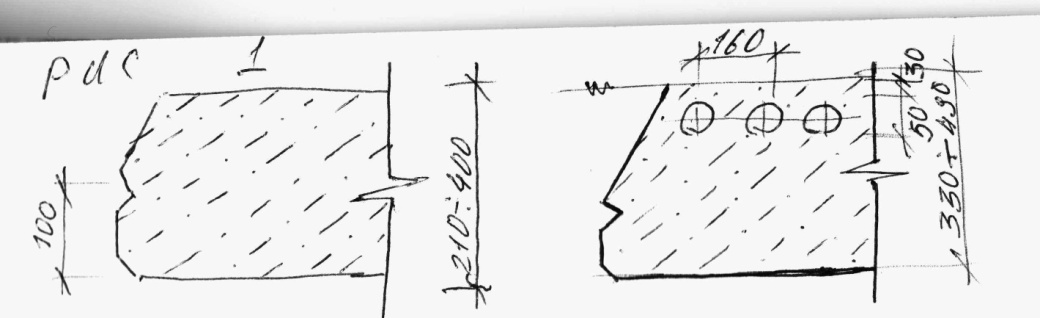 рис 1
100
210÷400
160
30
50
330÷490